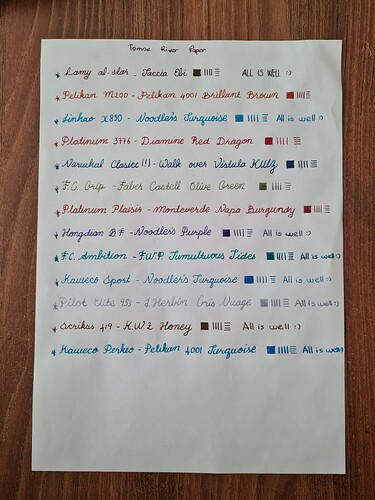 Tomoe River Paper
Lamy al-star - Taccia Ebi ALL IS WELL :)
Pelikan M200 - Pelikan 4001 Brillant Brown
Jinhao X850 - Noodler's Turquoise All is well :)
Platinum 3776 - Diamine Red Dragon
Narwhal Clasicc (!) - Walk over Vistula KWZ
F.C. Grip - Faber Castell Olive Green
Platinum Plaisir - Monteverde Napa Burgundy
Hongdian B.F - Noodler's Purple All is well :)
F.C. Ambition - F.W.P. Tumultuous Tides All is well :)
Kaweco Sport - Noodler's Turquoise All is well :)
Pilot Elite 95s - J. Herbin Gris Nuage All is well :)
Scrikss 419 - K.W.Z Honey All is well :)
Kaweco Perkeo - Pelikan 4001 Turquoise All is well :)